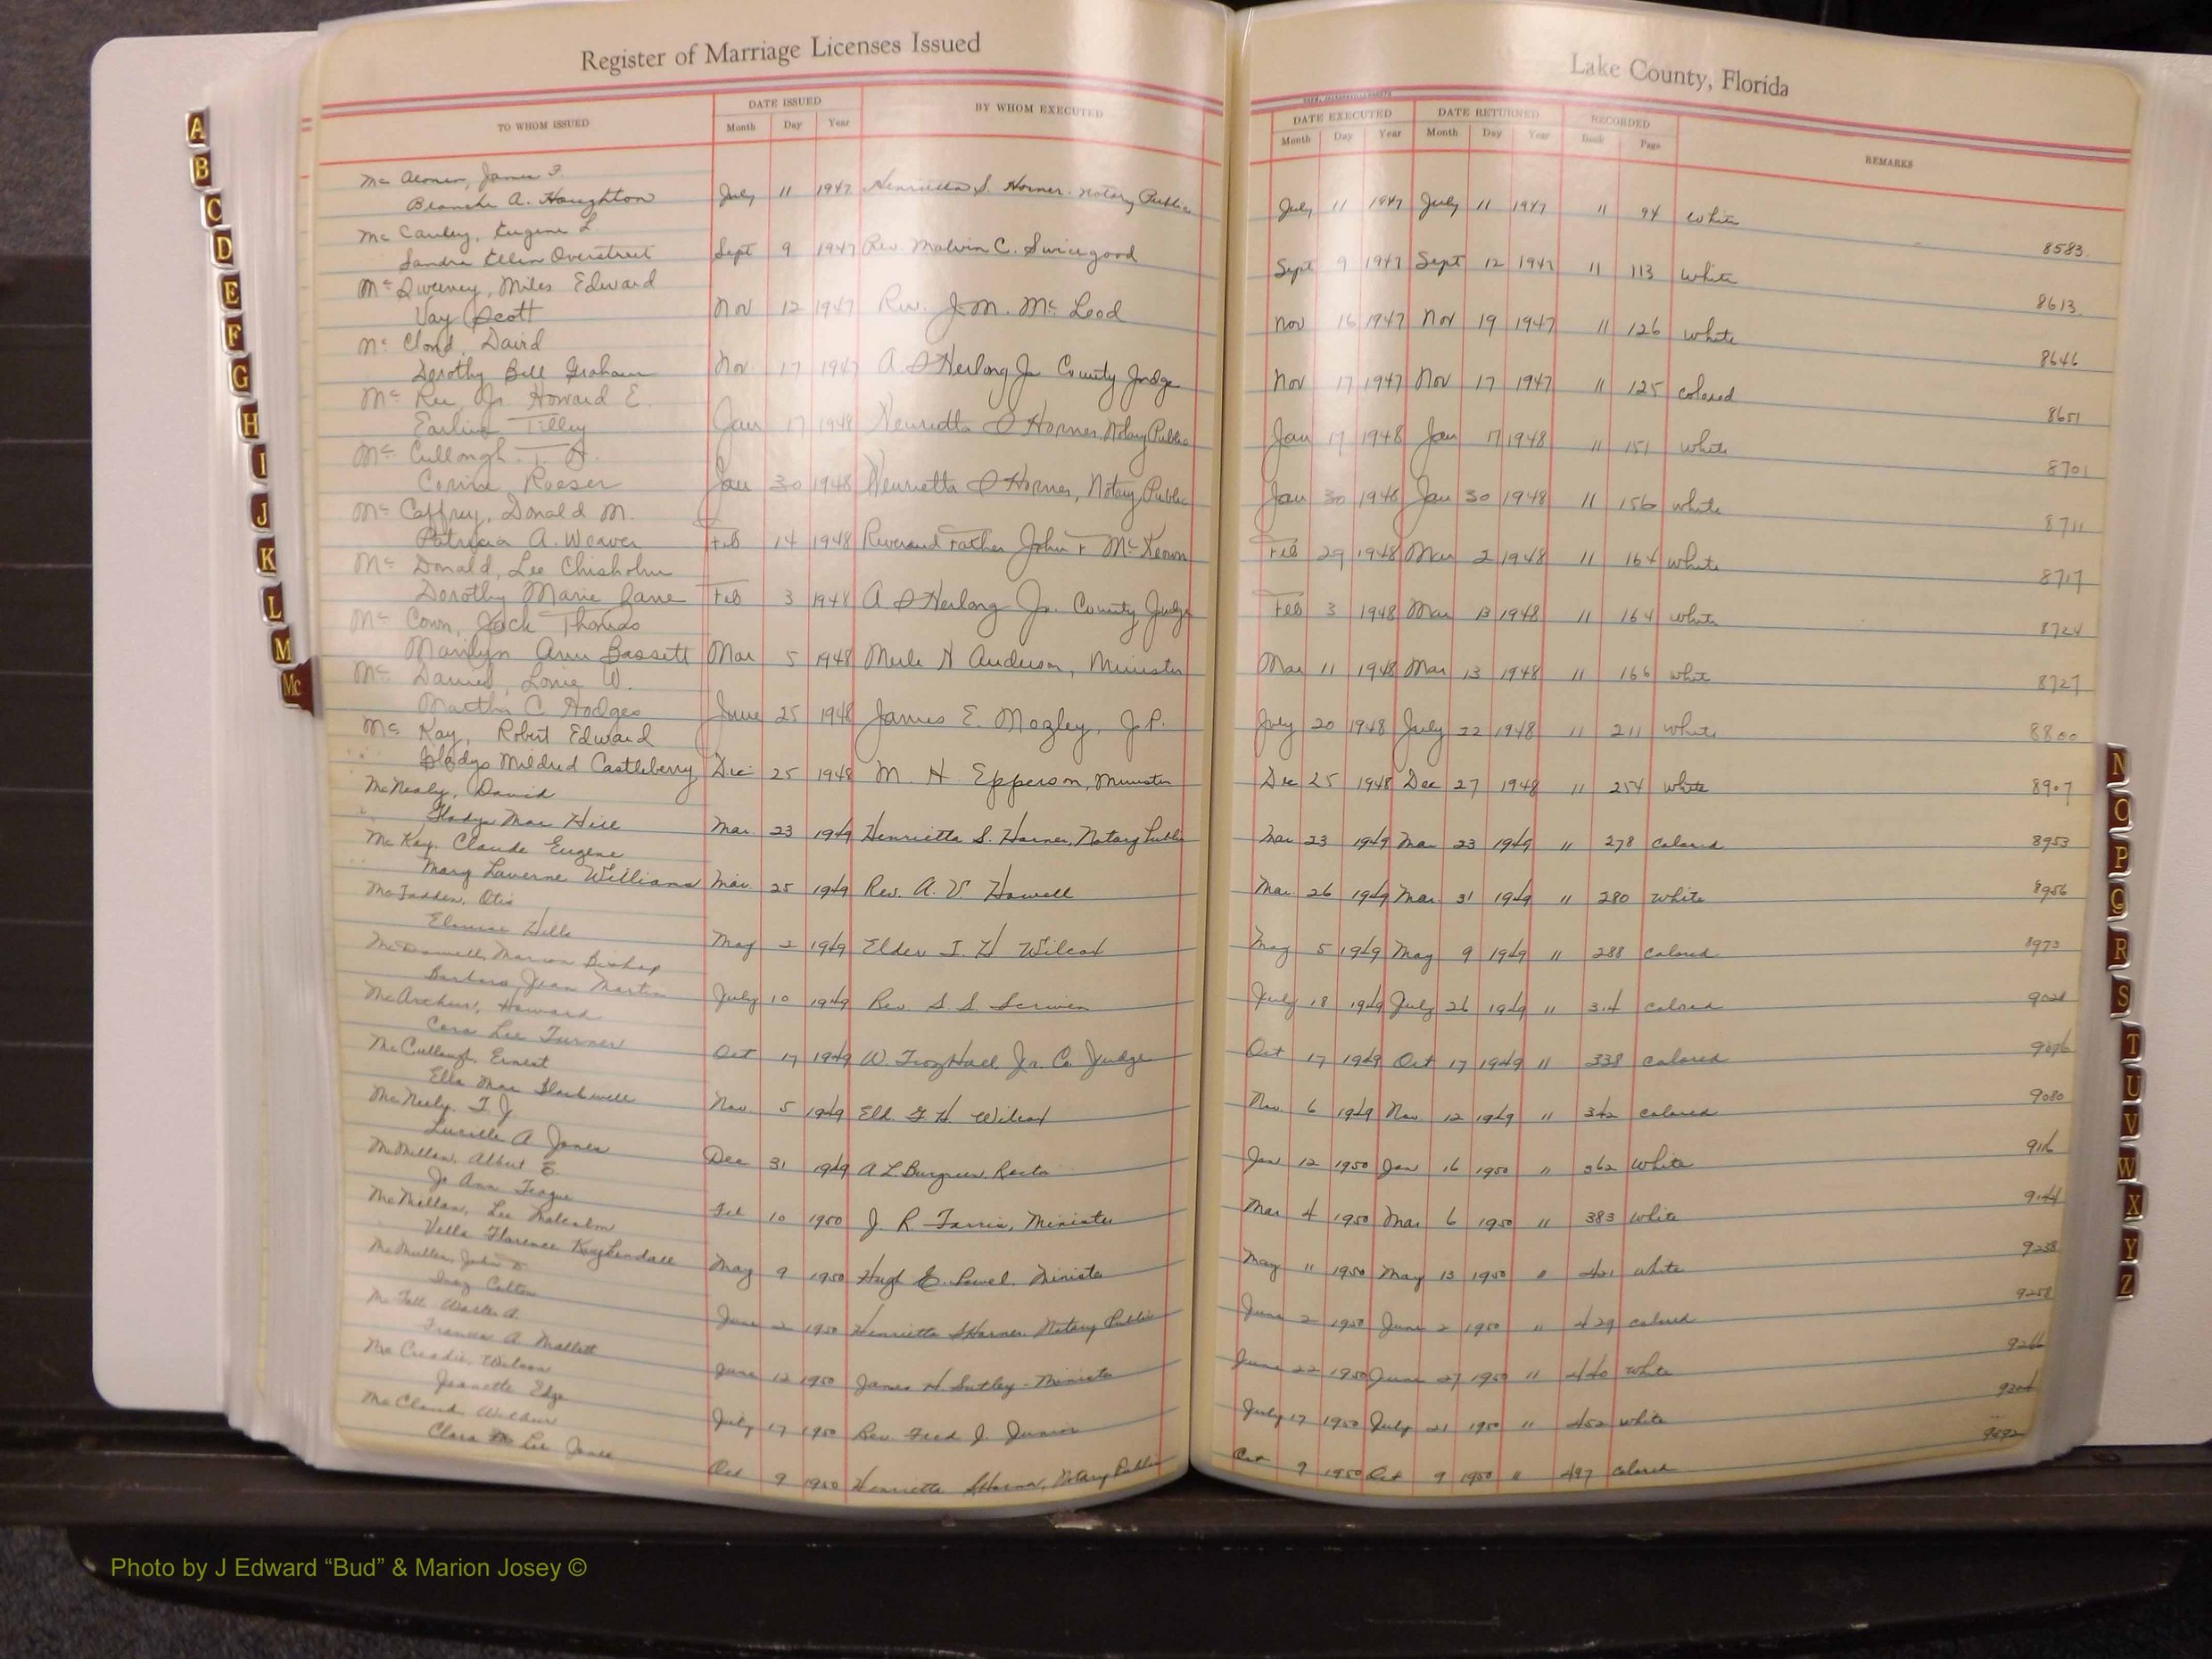 Register of Marriage Licenses Issued
Lake County, Florida
TO WHOM ISSUED
DATE ISSUED
Month Day Year
BY WHOM EXECUTED
DATE EXECUTED
Month Day Year
DATE RETURNED
Month Day Year
RECORDED
Book Page
REMARKS
Mc James F.
Blanche A. Houghton July 11 1947 Henrietta S. Horner. Notary Public July 11 1947 July 11 1947 11 94 White 8583
Mc Cauley, Eugene L
Sandra Ellen Overstreet Sept 9 1947 Rev. Malvin C. Swicegood Sept 9 1947 Sept 12 1947 11 113 White 8613
Mc Sweeney, Miles Edward
Vay Scott Nov 12 1947 Rev. J. M. Mc Leod Nov 16 1947 Nov 19 1947 11 126 White 8646
Mc Cloud, David
Dorothy Bell Graham Nov. 17 1947 A. S Herlong Jr County Judge Nov 17 1947 Nov 17 1947 11 125 colored 8651
Mc Kee, Jr. Howard E.
Tilley Jan 17 1948 Henrietta S Horner, Notary Public Jan 17 1948 Jan 17 1948 11 151 White 8701
Mc Cullough
Roeser Jan 30 1948 Henrietta S Horner, Notary Public Jan 30 1948 Jan 30 1948 11 156 White 8711
Mc Caffrey, Donald M.
Patricia A. Weaver Feb 14 1948 Reverend Father John F McKeown Feb 29 1948 Mar 2 1948 11 164 White 8717
Mc Donald, Lee Chisholm
Dorothy Marie Feb 3 1948 A S Herlong Jr. County Judge Feb 3 1948 Mar 13 1948 11 164 White 8724
Mc Cown, Jack Thomas
Marilyn Ann Bassett Mar 5 1948 Merle N Anderson, Minister Mar 11 1948 Mar 13 1948 11 166 White 8727
Mc Daniel, Lonie W.
Martha C. Hodges June 25 1948 James E. Mozley, J.P. July 20 1948 July 22 1948 11 211 White 8800
Mc Kay, Robert Edward
Gladys Mildred Castleberry Dec 25 1948 M. H. Epperson, Minister Dec 25 1948 Dec 27 1948 11 254 White 8907
McNealy, David
Gladys Mae Hill Mar. 23 1949 Henrietta S. Horner, Notary Public Mar 23 1949 Mar 23 1949 11 278 Colored 8953
McKay. Claude Eugene
Mary Laverne Williams Mar. 25 1949 Rev. A. V. Howell Mar. 26 1949 Mar. 31 1949 11 280 White 8956
McFadden, Otis
Hills May 2 1949 Elder Wilcox May 5 1949 May 9 1949 11 288 Colored 8973
McDowell, Marion Bishop
Barbara Jean Martin July 10 1949 Rev. S. S. Scriven July 18 1949 July 26 1949 11 314 Colored
McArthur, Howard
Cora Lee Turner Oct 17 1949 W. Troy Hall, Jr. Co. Judge Oct 17 1949 Oct 17 1949 11 338 Colored 9076
McCullough, Ernest
Ella Mae Blackwell Nov. 5 1949 Eld. Wilcox Nov. 6 1949 Nov. 12 1949 11 342 Colored 9080
McNeely, T. J.
Lucille A Jones Dec 31 1949 A L Burgreen, Rector Jan 12 1950 Jan 16 1950 11 362 White 9116
McMillan, Albert E.
Jo Ann Teague Feb 10 1950 J. R. Farris, Minister Mar 4 1950 Mar 6 1950 11 383 White 9144
McMillan, Lee Malcolm
Vella Florence Kuykendall May 9 1950 Hugh E. Powel. Minister May 11 1950 May 13 1950 11 421 White 9238
McMullen, John D
Inez Colton June 2 1950 Henrietta S Horner. Notary Public June 2 1950 June 2 1950 11 429 Colored 9258
McFall, Walter A.
Frances A Mallett June 12 1950 James H Sutley - Minister June 22 1950 June 27 1950 11 440 White 9266
McCreadie, Wilson
Jeanette Edge July 17 1950 Rev. Fred J. July 17 1950 July 21 1950 11 452 White
McCloud, Wilbur
Clara Lee Jones Oct 9 1950 Henrietta S Horner, Notary Public Oct 9 1950 Oct 9 1950 11 497 Colored
A
B
C
D
E
F
G
H
I
J
K
L
M
Mc
N
O
P
Q
R
S
T
U
V
W
X
Y
Z
Photo by J Edward “Bud” & Marion Josey ©